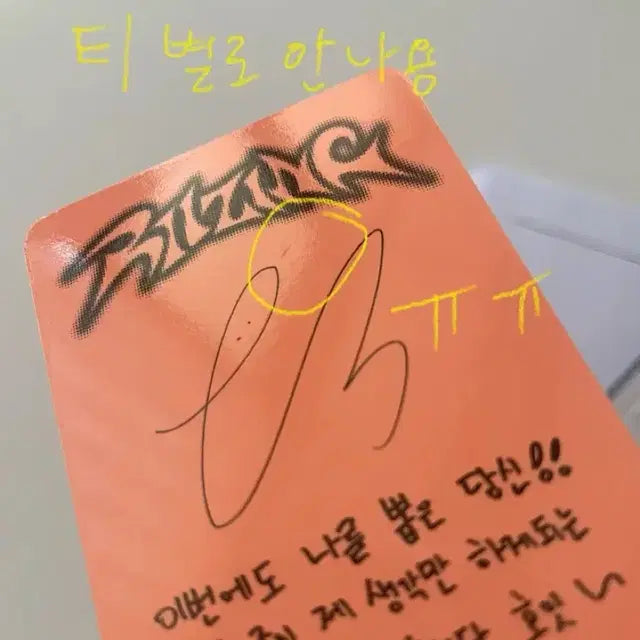 티 별로 안 나용
RIIZING
ㅠㅠ
이번에도 나를 뽑은 당신!!
제 생각만 하게되는